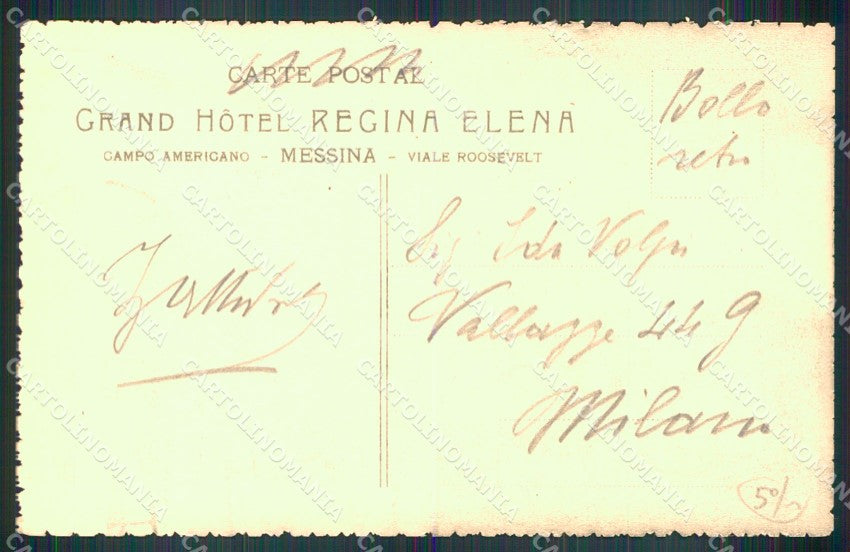 CARTE POSTALE
GRAND HÔTEL REGINA ELENA
CAMPO AMERICANO - MESSINA - VIALE ROOSEVELT
Bollo
retro
Sig Ida Volpi
44 G
Milano
CARTOLINOMANIA